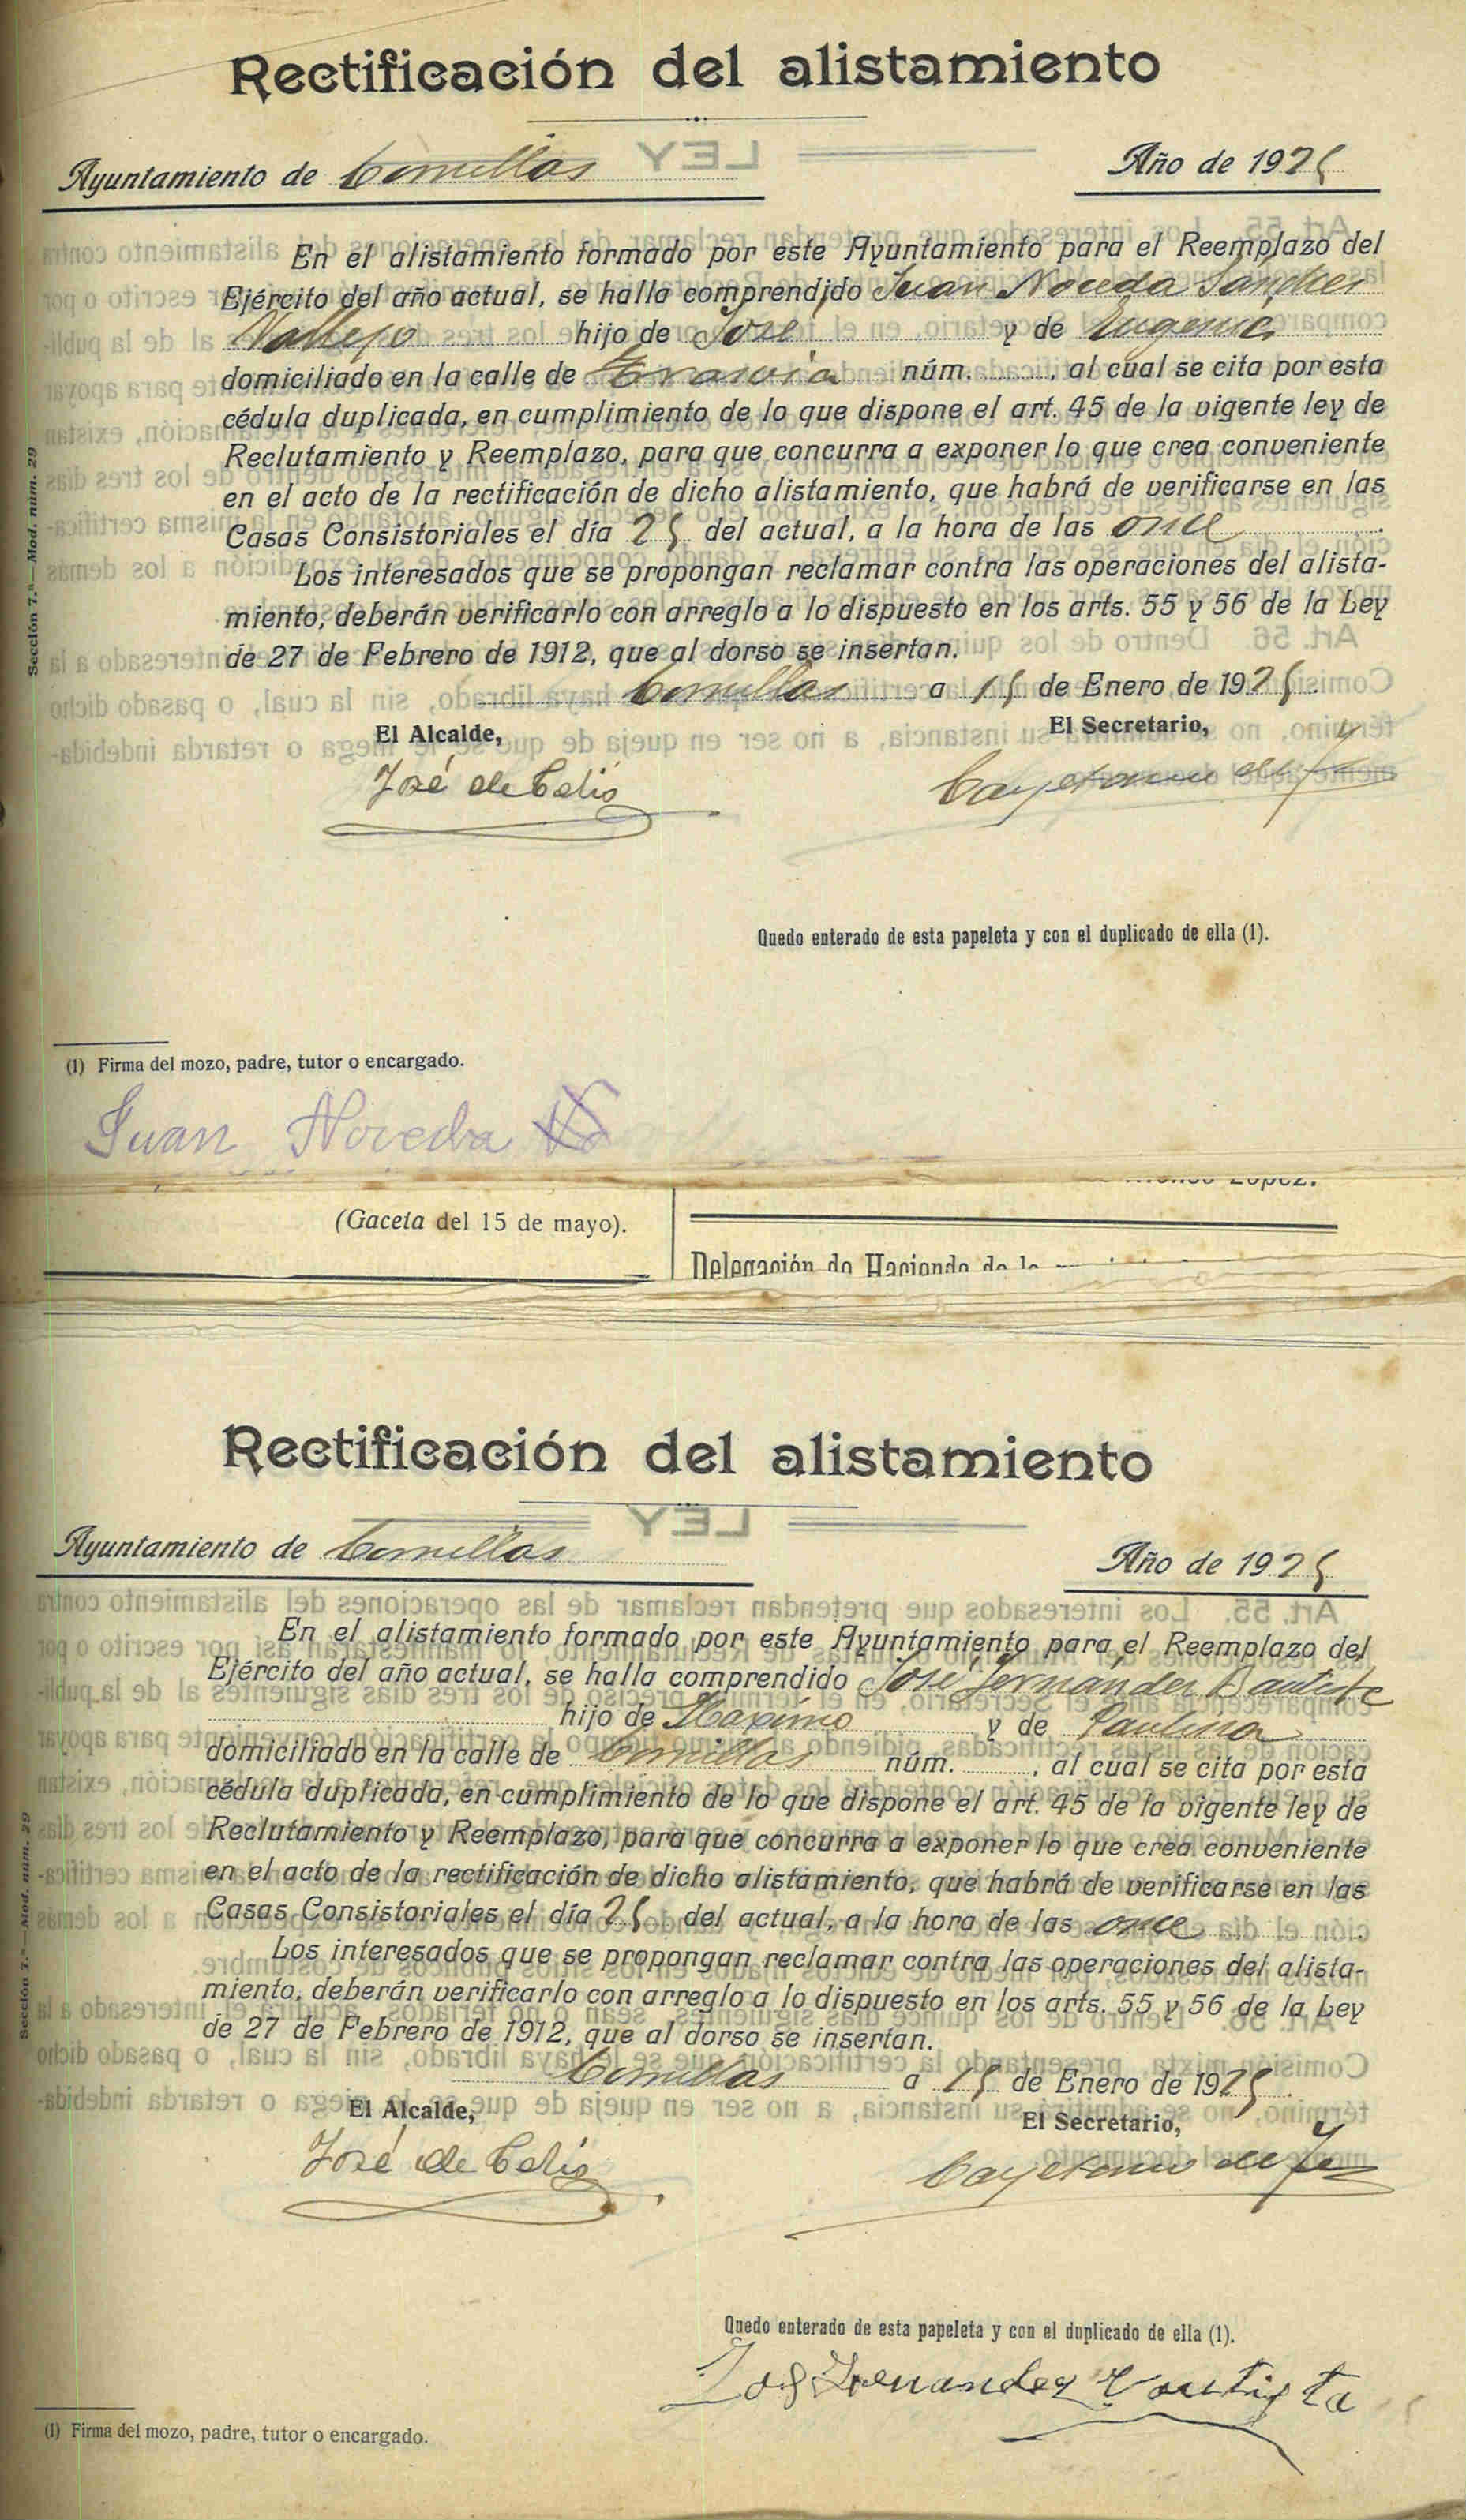 Rectificación del alistamiento
Ayuntamiento de Comillas
Año de 1925
En el alistamiento formado por este Ayuntamiento para el Reemplazo del
Ejército del año actual, se halla comprendido Juan Noreda Sánchez
Vallejo hijo de José y de Eugenia
domiciliado en la calle de núm. , al cual se cita por esta
cédula duplicada, en cumplimiento de lo que dispone el art. 45 de la vigente ley de
Reclutamiento y Reemplazo, para que concurra a exponer lo que crea conveniente
en el acto de la rectificación de dicho alistamiento, que habrá de verificarse en las
Casas Consistoriales el día 25 del actual, a la hora de las once
Los interesados que se propongan reclamar contra las operaciones del alista-
miento, deberán verificarlo con arreglo a lo dispuesto en los arts. 55 y 56 de la Ley
de 27 de Febrero de 1912, que al dorso se insertan.
Comillas a 15 de Enero de 1925.
El Alcalde,
El Secretario,
José de Celis
Cayetano de
Quedo enterado de esta papeleta y con el duplicado de ella (1).
(1) Firma del mozo, padre, tutor o encargado.
Juan Noreda
Sección 7.ª—Mod. núm. 29
López.
(Gaceta del 15 de mayo).
Delegación de Hacienda de la
Rectificación del alistamiento
Ayuntamiento de Comillas
Año de 1925
En el alistamiento formado por este Ayuntamiento para el Reemplazo del
Ejército del año actual, se halla comprendido José Fernández Bautista
hijo de Maximo y de Paulina
domiciliado en la calle de Comillas núm. , al cual se cita por esta
cédula duplicada, en cumplimiento de lo que dispone el art. 45 de la vigente ley de
Reclutamiento y Reemplazo, para que concurra a exponer lo que crea conveniente
en el acto de la rectificación de dicho alistamiento, que habrá de verificarse en las
Casas Consistoriales el día 25 del actual, a la hora de las once
Los interesados que se propongan reclamar contra las operaciones del alista-
miento, deberán verificarlo con arreglo a lo dispuesto en los arts. 55 y 56 de la Ley
de 27 de Febrero de 1912, que al dorso se insertan.
Comillas a 15 de Enero de 1925.
El Alcalde,
El Secretario,
José de Celis
Cayetano de
Quedo enterado de esta papeleta y con el duplicado de ella (1).
(1) Firma del mozo, padre, tutor o encargado.
Sección 7.ª—Mod. núm. 29